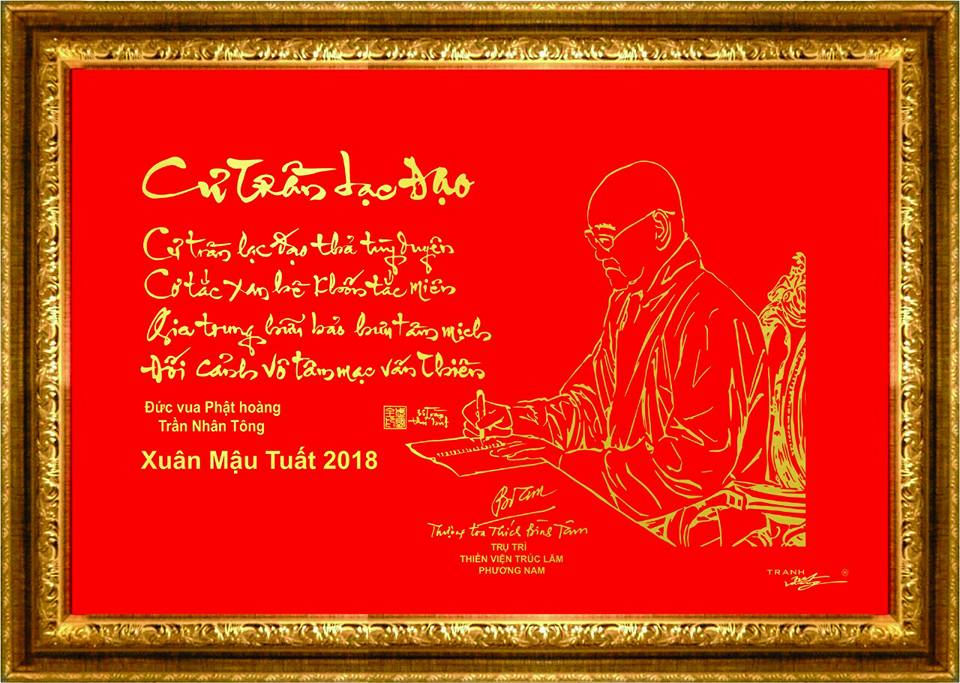 Cư trần lạc Đạo
Cư trần lạc Đạo thả tùy duyên
Cơ tắc xan hề khốn tắc miên
Gia trung hữu bảo hưu tầm mịch
Đối cảnh vô tâm mạc vấn Thiền
Đức vua Phật hoàng
Trần Nhân Tông
Xuân Mậu Tuất 2018
Thượng tọa Thích Bình Tâm
TRỤ TRÌ
THIỀN VIỆN TRÚC LÂM
PHƯƠNG NAM
TRANH